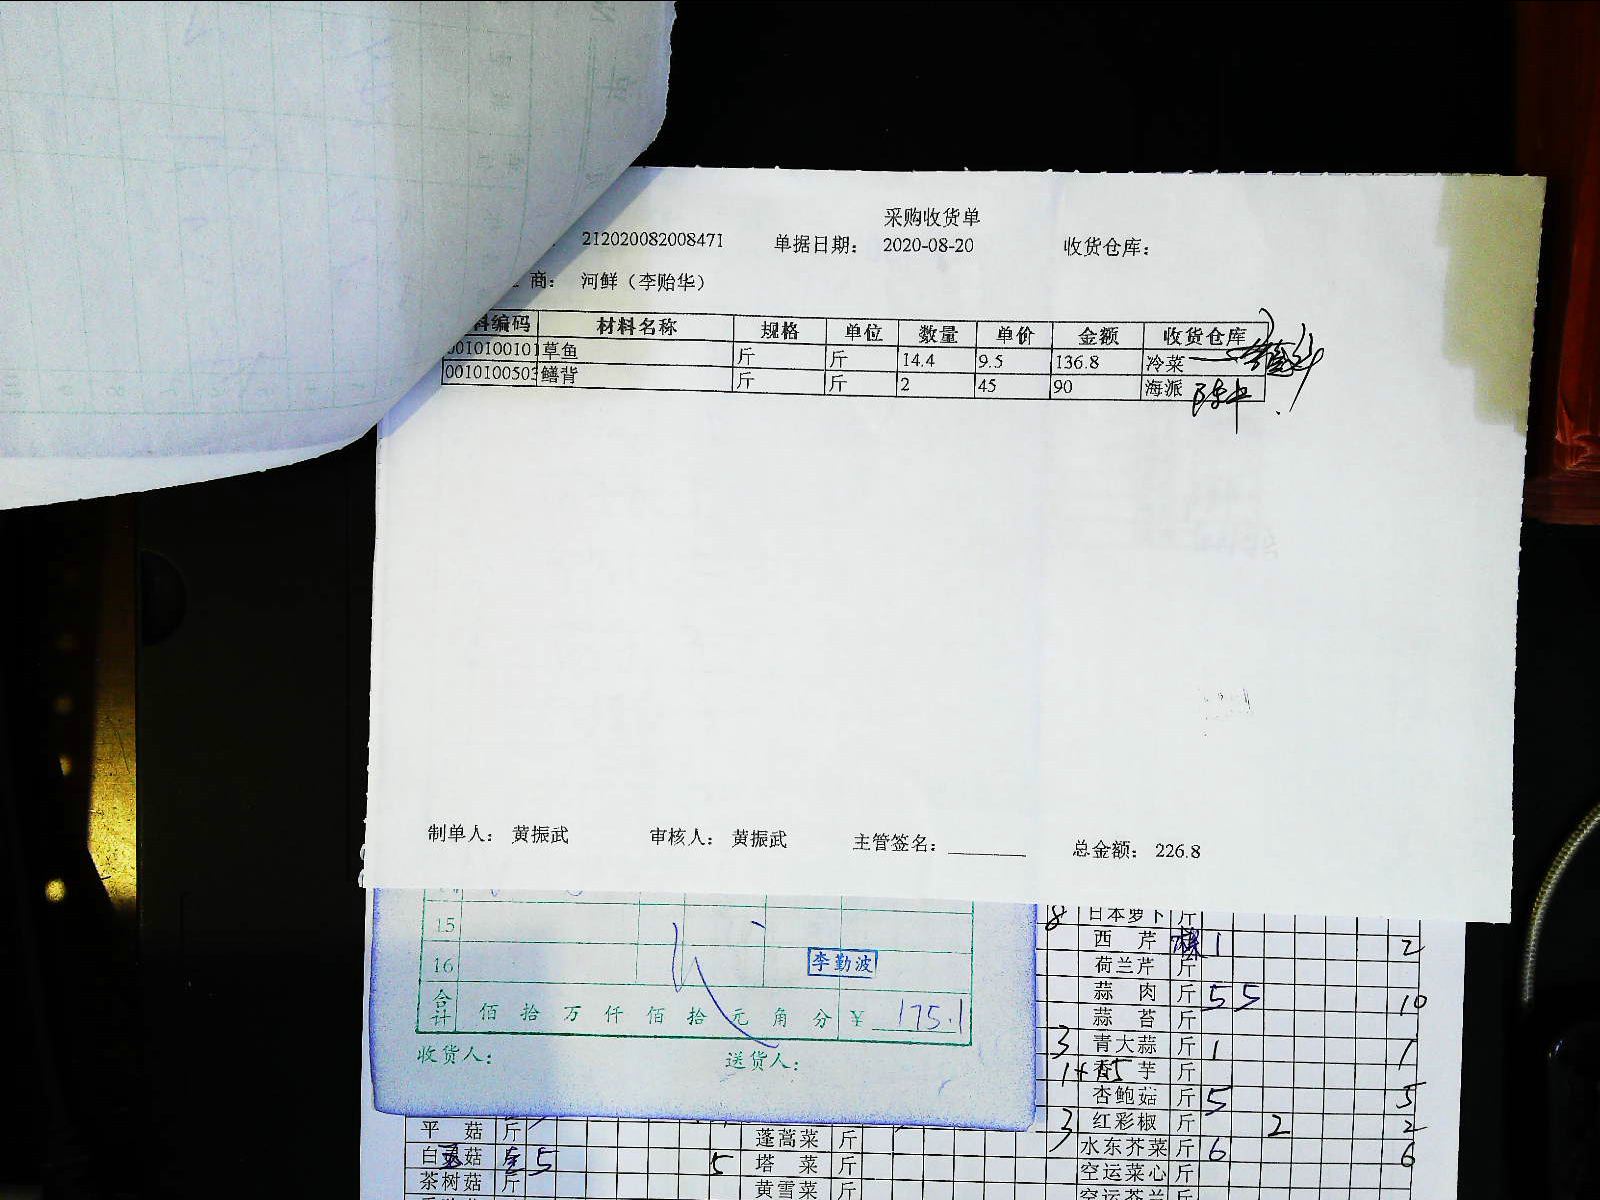 采购收货单
212020082008471 单据日期： 2020-08-20 收货仓库：
商： 河鲜（李贻华）
料编码 材料名称 规格 单位 数量 单价 金额 收货仓库
0010100101 草鱼 斤 斤 14.4 9.5 136.8 冷菜
0010100503 鳝背 斤 斤 2 45 90 海派
制单人： 黄振武 审核人： 黄振武 主管签名： 总金额： 226.8
15
16 李勤波
合计 佰 拾 万 仟 佰 拾 元 角 分 ￥ 175.1
收货人： 送货人：
8 日本萝卜 斤
西 芹 1 2
荷兰芹 斤
蒜 肉 斤 5 5 10
蒜 苔 斤
3 青大蒜 斤 1 1
芋 斤
杏鲍菇 斤 5 5
3 红彩椒 斤 2 2
水东芥菜 斤 6 6
空运菜心 斤
空运芥兰 斤
平 菇 斤 蓬蒿菜 斤
白 菇 5 5 塔 菜 斤
茶树菇 斤 黄雪菜 斤